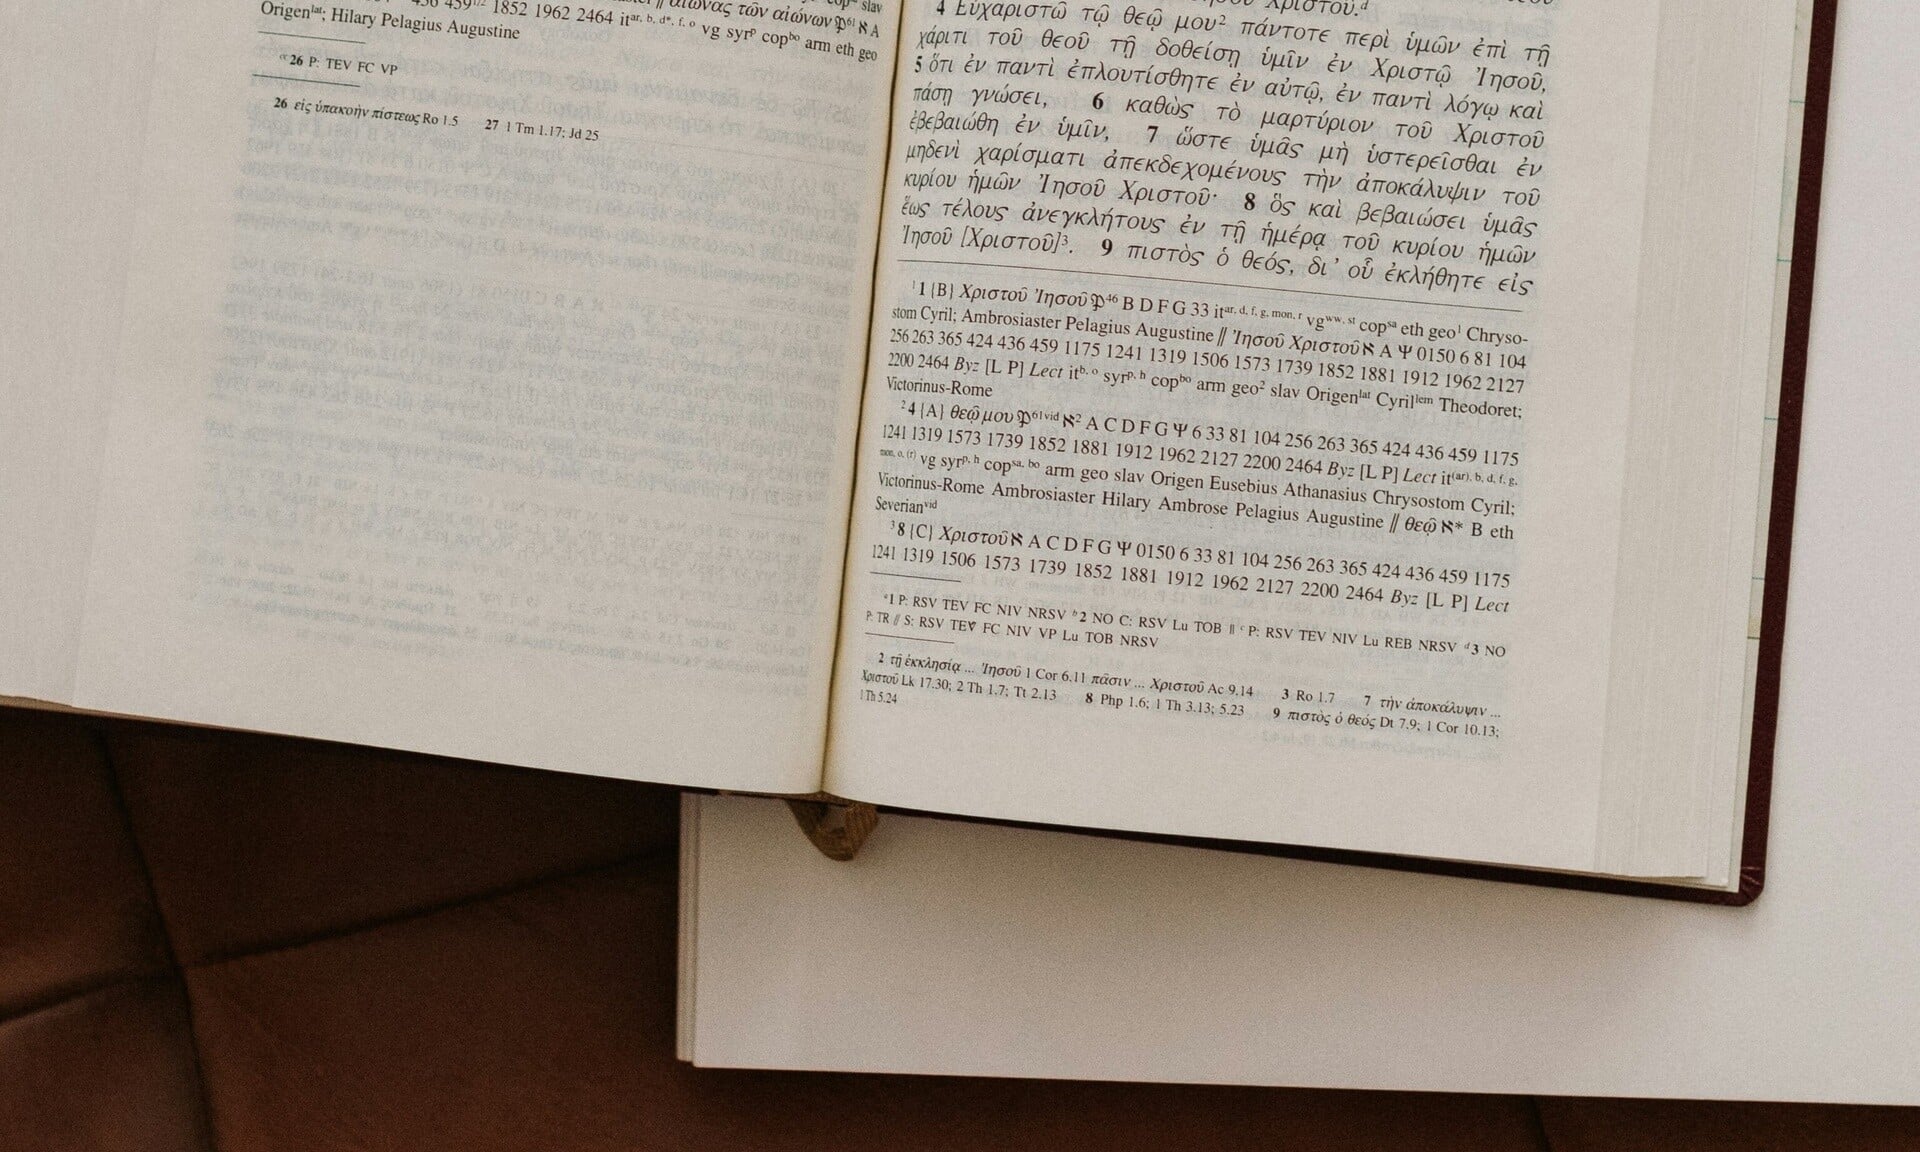 436 459¹ᐟ² 1852 1962 2464 itᵃʳ, ᵇ, ᵈ*, ᶠ, ᵒ vg syrᵖ copᵇᵒ arm eth geo
αἰῶνας τῶν αἰώνων 𝔓⁶¹ ℵ A
Originˡᵃᵗ; Hilary Pelagius Augustine
ᵃ26 P: TEV FC VP
26 εἰς ὑπακοὴν πίστεως Ro 1.5 27 1 Tm 1.17; Jd 25
Χριστοῦ.ᵈ
4 Εὐχαριστῶ τῷ θεῷ μου² πάντοτε περὶ ὑμῶν ἐπὶ τῇ
χάριτι τοῦ θεοῦ τῇ δοθείσῃ ὑμῖν ἐν Χριστῷ Ἰησοῦ,
5 ὅτι ἐν παντὶ ἐπλουτίσθητε ἐν αὐτῷ, ἐν παντὶ λόγῳ καὶ
πάσῃ γνώσει, 6 καθὼς τὸ μαρτύριον τοῦ Χριστοῦ
ἐβεβαιώθη ἐν ὑμῖν, 7 ὥστε ὑμᾶς μὴ ὑστερεῖσθαι ἐν
μηδενὶ χαρίσματι ἀπεκδεχομένους τὴν ἀποκάλυψιν τοῦ
κυρίου ἡμῶν Ἰησοῦ Χριστοῦ· 8 ὃς καὶ βεβαιώσει ὑμᾶς
ἕως τέλους ἀνεγκλήτους ἐν τῇ ἡμέρᾳ τοῦ κυρίου ἡμῶν
Ἰησοῦ [Χριστοῦ]³. 9 πιστὸς ὁ θεός, δι’ οὗ ἐκλήθητε εἰς
¹1 {B} Χριστοῦ Ἰησοῦ 𝔓⁴⁶ B D F G 33 itᵃʳ, ᵈ, ᶠ, ᵍ, ᵐᵒⁿ, ʳ vgʷʷ, ˢᵗ copˢᵃ eth geo¹ Chryso-
stom Cyril; Ambrosiaster Pelagius Augustine // Ἰησοῦ Χριστοῦ ℵ A Ψ 0150 6 81 104
256 263 365 424 436 459 1175 1241 1319 1506 1573 1739 1852 1881 1912 1962 2127
2200 2464 Byz [L P] Lect itᵇ, ᵒ syrᵖ, ʰ copᵇᵒ arm geo² slav Origenˡᵃᵗ Cyrilˡᵉᵐ Theodoret;
Victorinus-Rome
²4 {A} θεῷ μου 𝔓⁶¹ᵛⁱᵈ ℵ² A C D F G Ψ 6 33 81 104 256 263 365 424 436 459 1175
1241 1319 1573 1739 1852 1881 1912 1962 2127 2200 2464 Byz [L P] Lect it⁽ᵃʳ⁾, ᵇ, ᵈ, ᶠ, ᵍ,
ᵐᵒⁿ, ᵒ, ⁽ʳ⁾ vg syrᵖ, ʰ copˢᵃ, ᵇᵒ arm geo slav Origen Eusebius Athanasius Chrysostom Cyril;
Victorinus-Rome Ambrosiaster Hilary Ambrose Pelagius Augustine // θεῷ ℵ* B eth
Severianᵛⁱᵈ
³8 {C} Χριστοῦ ℵ A C D F G Ψ 0150 6 33 81 104 256 263 365 424 436 459 1175
1241 1319 1506 1573 1739 1852 1881 1912 1962 2127 2200 2464 Byz [L P] Lect
ᵃ1 P: RSV TEV FC NIV NRSV ᵇ2 NO C: RSV Lu TOB // ᶜP: RSV TEV NIV Lu REB NRSV ᵈ3 NO
P: TR // S: RSV TEV FC NIV VP Lu TOB NRSV
2 τῇ ἐκκλησίᾳ ... Ἰησοῦ 1 Cor 6.11 πᾶσιν ... Χριστοῦ Ac 9.14 3 Ro 1.7 7 τὴν ἀποκάλυψιν ...
Χριστοῦ Lk 17.30; 2 Th 1.7; Tt 2.13 8 Php 1.6; 1 Th 3.13; 5.23 9 πιστὸς ὁ θεός Dt 7.9; 1 Cor 10.13;
1 Th 5.24